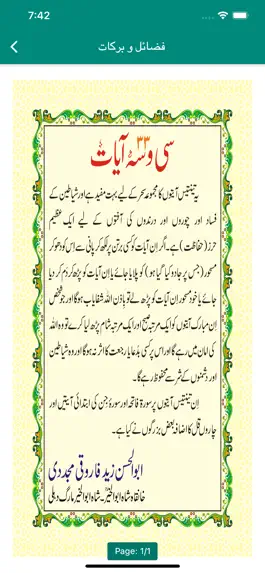 7:42
فضائل و برکات
سی و سہ ۳۳ آیات
یہ تینتیس آیتوں کا مجموعہ سحر کے لیے بہت مفید ہے اور شیاطین کے
فساد اور چوروں اور درندوں کی آفتوں کے لیے ایک عظیم
حرز (حفاظت) ہے۔ اگر اِن آیات کو کسی برتن پر لکھ کر پانی سے اس کو دھو کر
مسحور (جس پر جادو کیا گیا ہو) کو پلایا جائے یا اِن آیات کو پڑھ کر دَم کر دیا
جائے یا خود مسحور اِن آیات کو پڑھ لے تو باذن اللہ شفایاب ہوگا اور جو شخص
اِن مبارک آیتوں کو ایک مرتبہ صبح اور ایک مرتبہ شام پڑھ لیا کرے تو وہ اللہ
کی امان میں رہے گا اور اس پر کسی بددعا یا رجعت کا اثر نہ ہوگا اور وہ شیاطین
اور دشمنوں کے شر سے محفوظ رہے گا۔
اِن تینتیس آیتوں پر سورۃ فاتحہ اور سورۃ جن کی ابتدائی آیتیں اور
چاروں قل کا اضافہ بعض بزرگوں نے کیا ہے۔
ابوالحسن زید فاروقی مجددی
خانقاہ شاہ ابوالخیرؒ۔ شاہ ابوالخیر مارگ دہلی
Page: 1/1